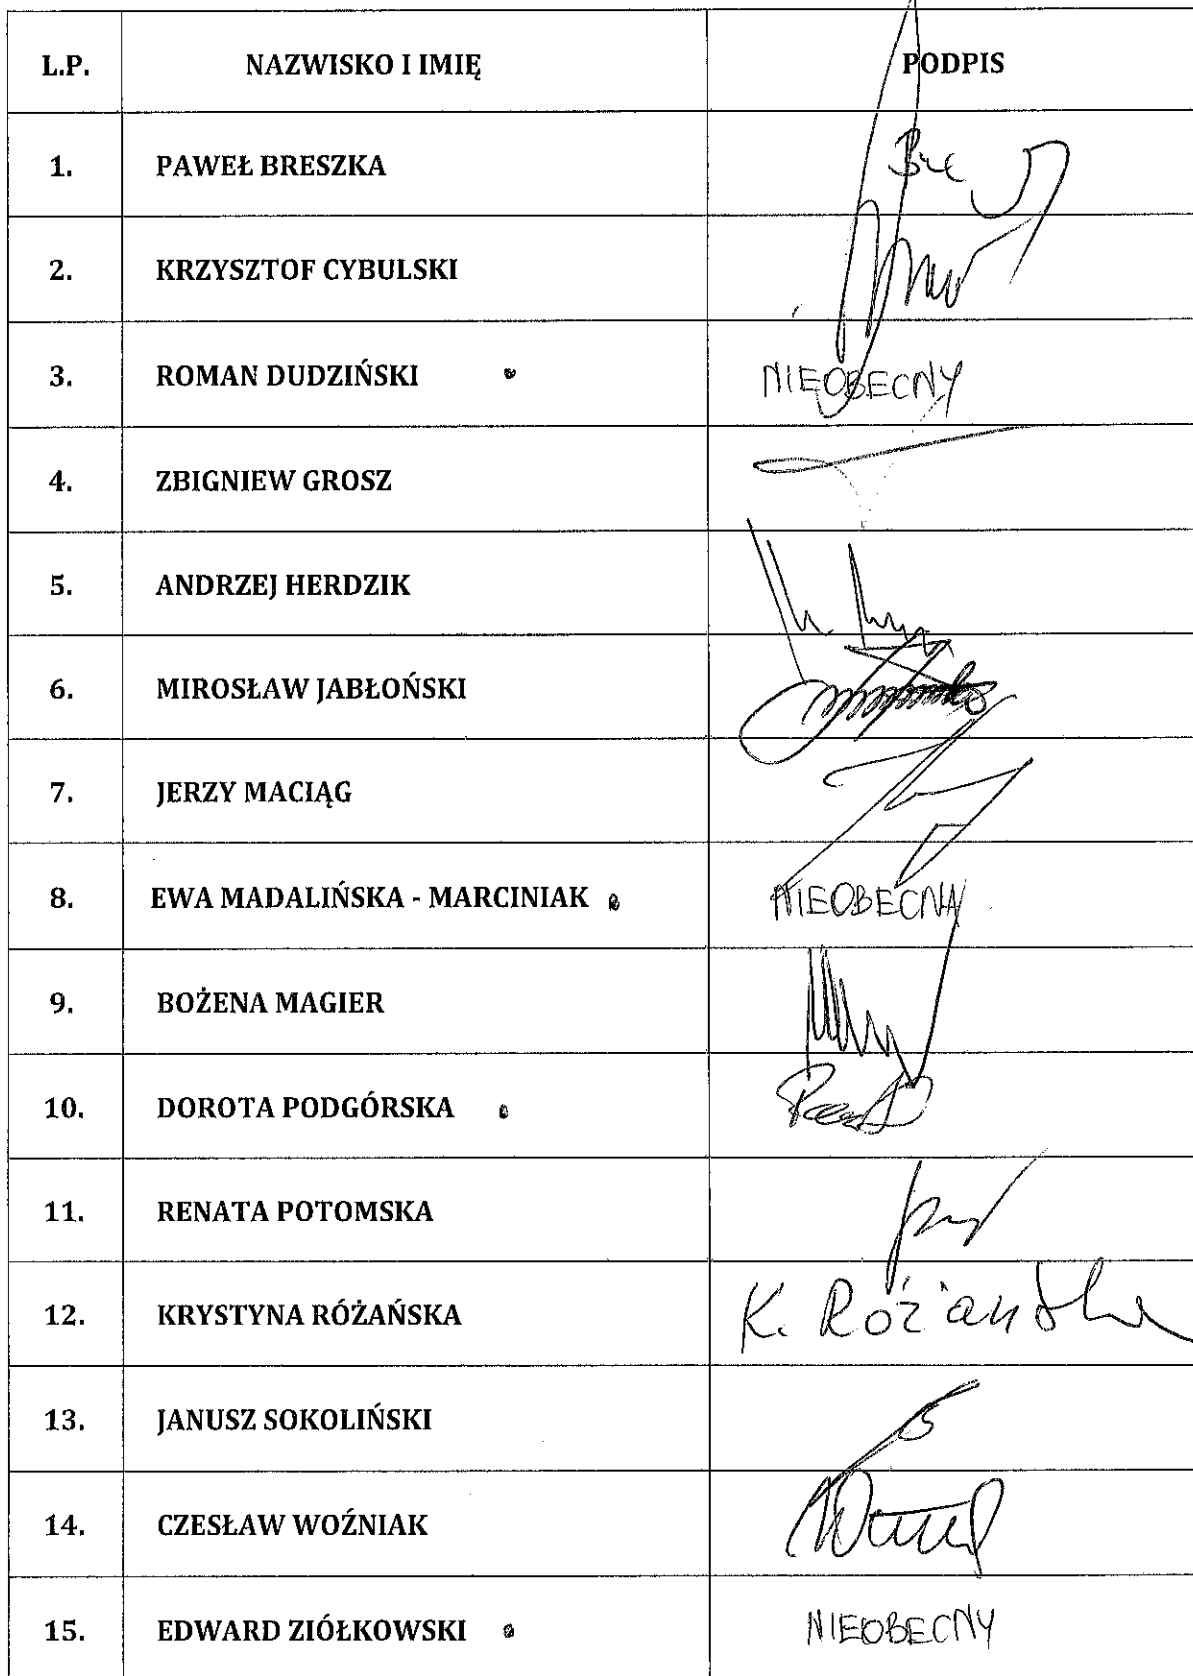 L.P. NAZWISKO I IMIĘ PODPIS
1. PAWEŁ BRESZKA
2. KRZYSZTOF CYBULSKI
3. ROMAN DUDZIŃSKI NIEOBECNY
4. ZBIGNIEW GROSZ
5. ANDRZEJ HERDZIK
6. MIROSŁAW JABŁOŃSKI
7. JERZY MACIĄG
8. EWA MADALIŃSKA - MARCINIAK NIEOBECNA
9. BOŻENA MAGIER
10. DOROTA PODGÓRSKA
11. RENATA POTOMSKA
12. KRYSTYNA RÓŻAŃSKA K. Różańska
13. JANUSZ SOKOLIŃSKI
14. CZESŁAW WOŹNIAK
15. EDWARD ZIÓŁKOWSKI NIEOBECNY